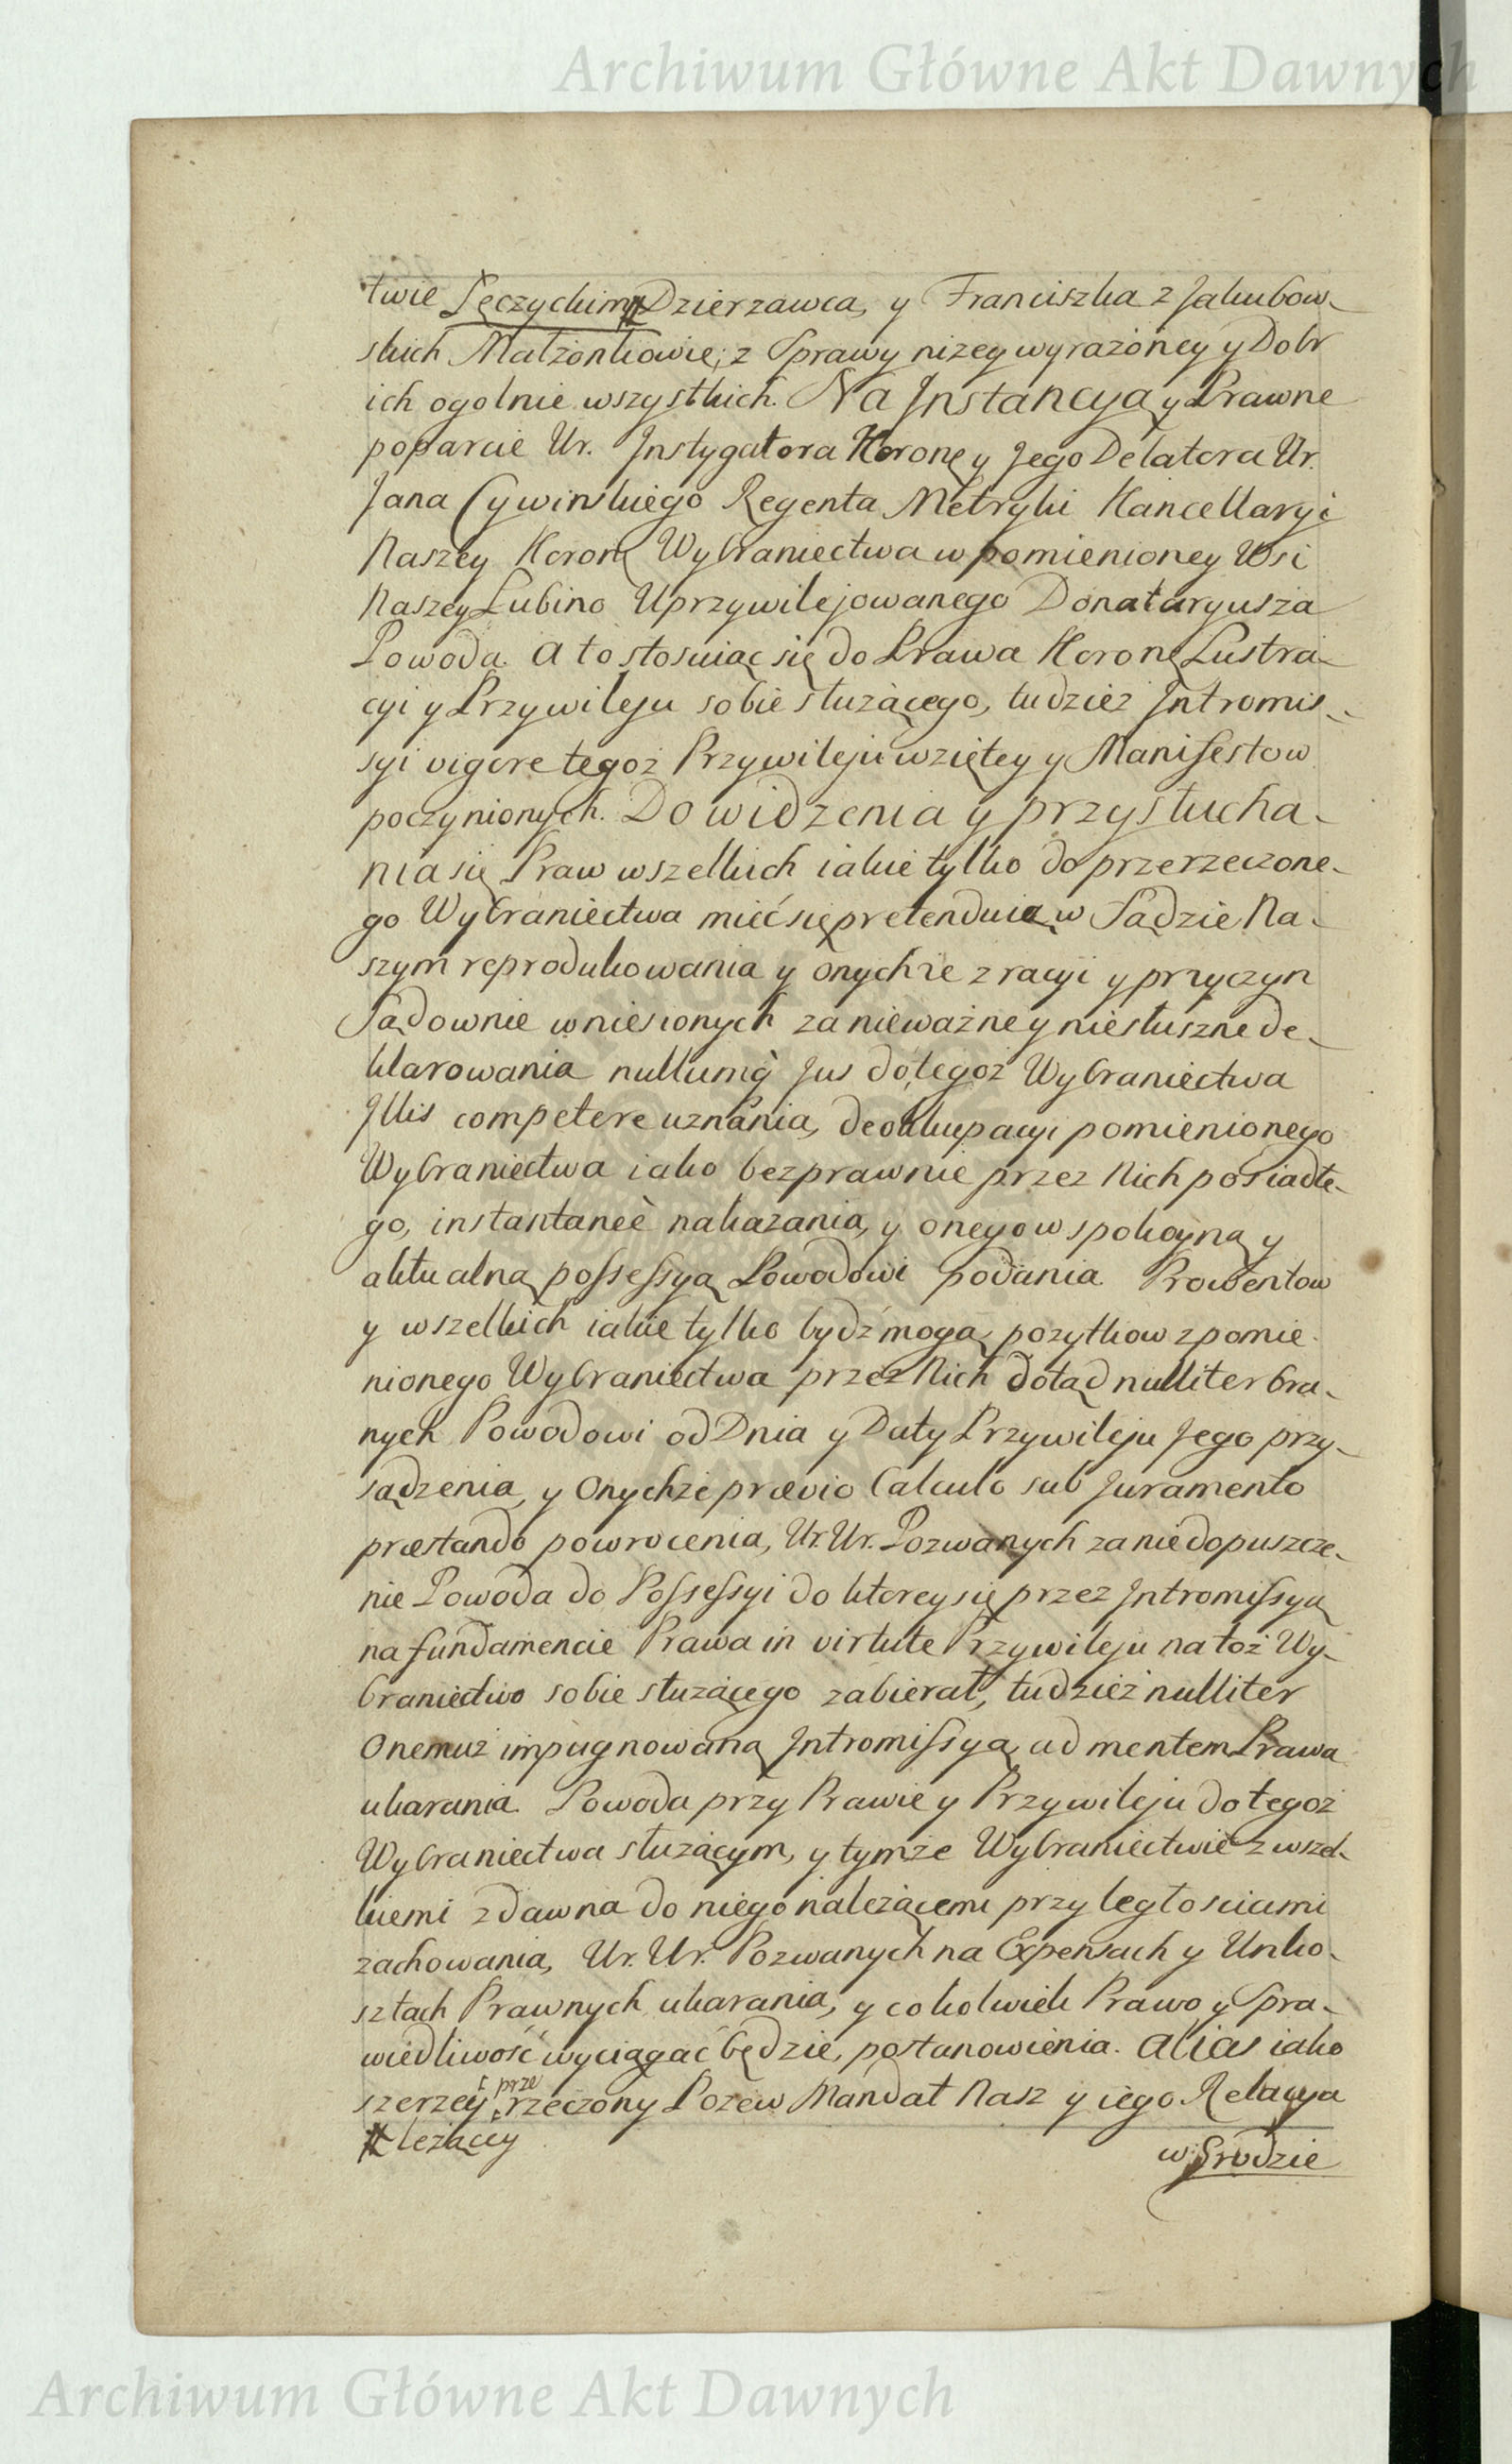 Archiwum Główne Akt Dawnych
twie Łęczyckim # Dzierzawca, y Franciszka z Jakubow-
skich Małżonkowie, z Sprawy niżey wyrażoney y Dobr
ich ogolnie wszystkich. Na Instancyą y Prawne
poparcie Ur. Instygatora Koronę y Jego Delatora Ur.
Jana Cywinskiego Regenta Metryki Kancellaryi
Naszey Koronę Wybraniectwa w pomienioney Wsi
Naszey Lubino Uprzywilejowanego Donataryusza
Powoda. A to stosuiąc się do Prawa Koronę Lustra-
cyi y Przywileju sobie służącego, tudzież Intromis-
syi vigore tegoż Przywileju wziętey y Manifestow
poczynionych. Do widzenia y przysłucha-
nia się Praw wszelkich iakie tylko do przerzeczone-
go Wybraniectwa mieć się pretenduią w Sądzie Na-
szym reprodukowania y onychże z racyi y przyczyn
Sądownie wniesionych za nieważne y niesłuszne de-
klarowania nullumq́ Jus do tegoż Wybraniectwa
Illis competere uznania, deokkupacyi pomienionego
Wybraniectwa iako bezprawnie przez Nich posiadłe-
go, instantaneè nakazania, y onego w spokoyną y
aktualną possessyą Powodowi podania. Prowentow
y wszelkich iakie tylko bydź mogą, pozytkow z pomie-
nionego Wybraniectwa przez Nich dotąd nulliter bra-
nych Powodowi od Dnia y Daty Przywileju Jego przy-
sądzenia, y Onychże prævio Calculo sub Juramento
præstando powrocenia, Ur. Ur. Pozwanych za niedopuszcze-
nie Powoda do Possessyi do ktorey się przez Intromissyą
na fundamencie Prawa in virtute Przywileju na toż Wy-
braniectwo sobie służącego zabierał, tudzież nulliter
Onemuż impugnowaną Intromissyą, ad mentem Prawa
ukarania. Powoda przy Prawie y Przywileju do tegoż
Wybraniectwa służącym, y tymże Wybraniectwie z wszel-
kiemi zdawna do niego należącemi przyległosciami
zachowania, Ur. Ur. Pozwanych na Expensach y Unko-
sztach Prawnych ukarania, y cokolwiek Prawo y Spra-
wiedliwość wyciągać będzie, postanowienia. Alias iako
szerzey prze rzeczony Pozew Mandat Nasz y iego Relacya
# leżącey
w Grodzie
Archiwum Główne Akt Dawnych